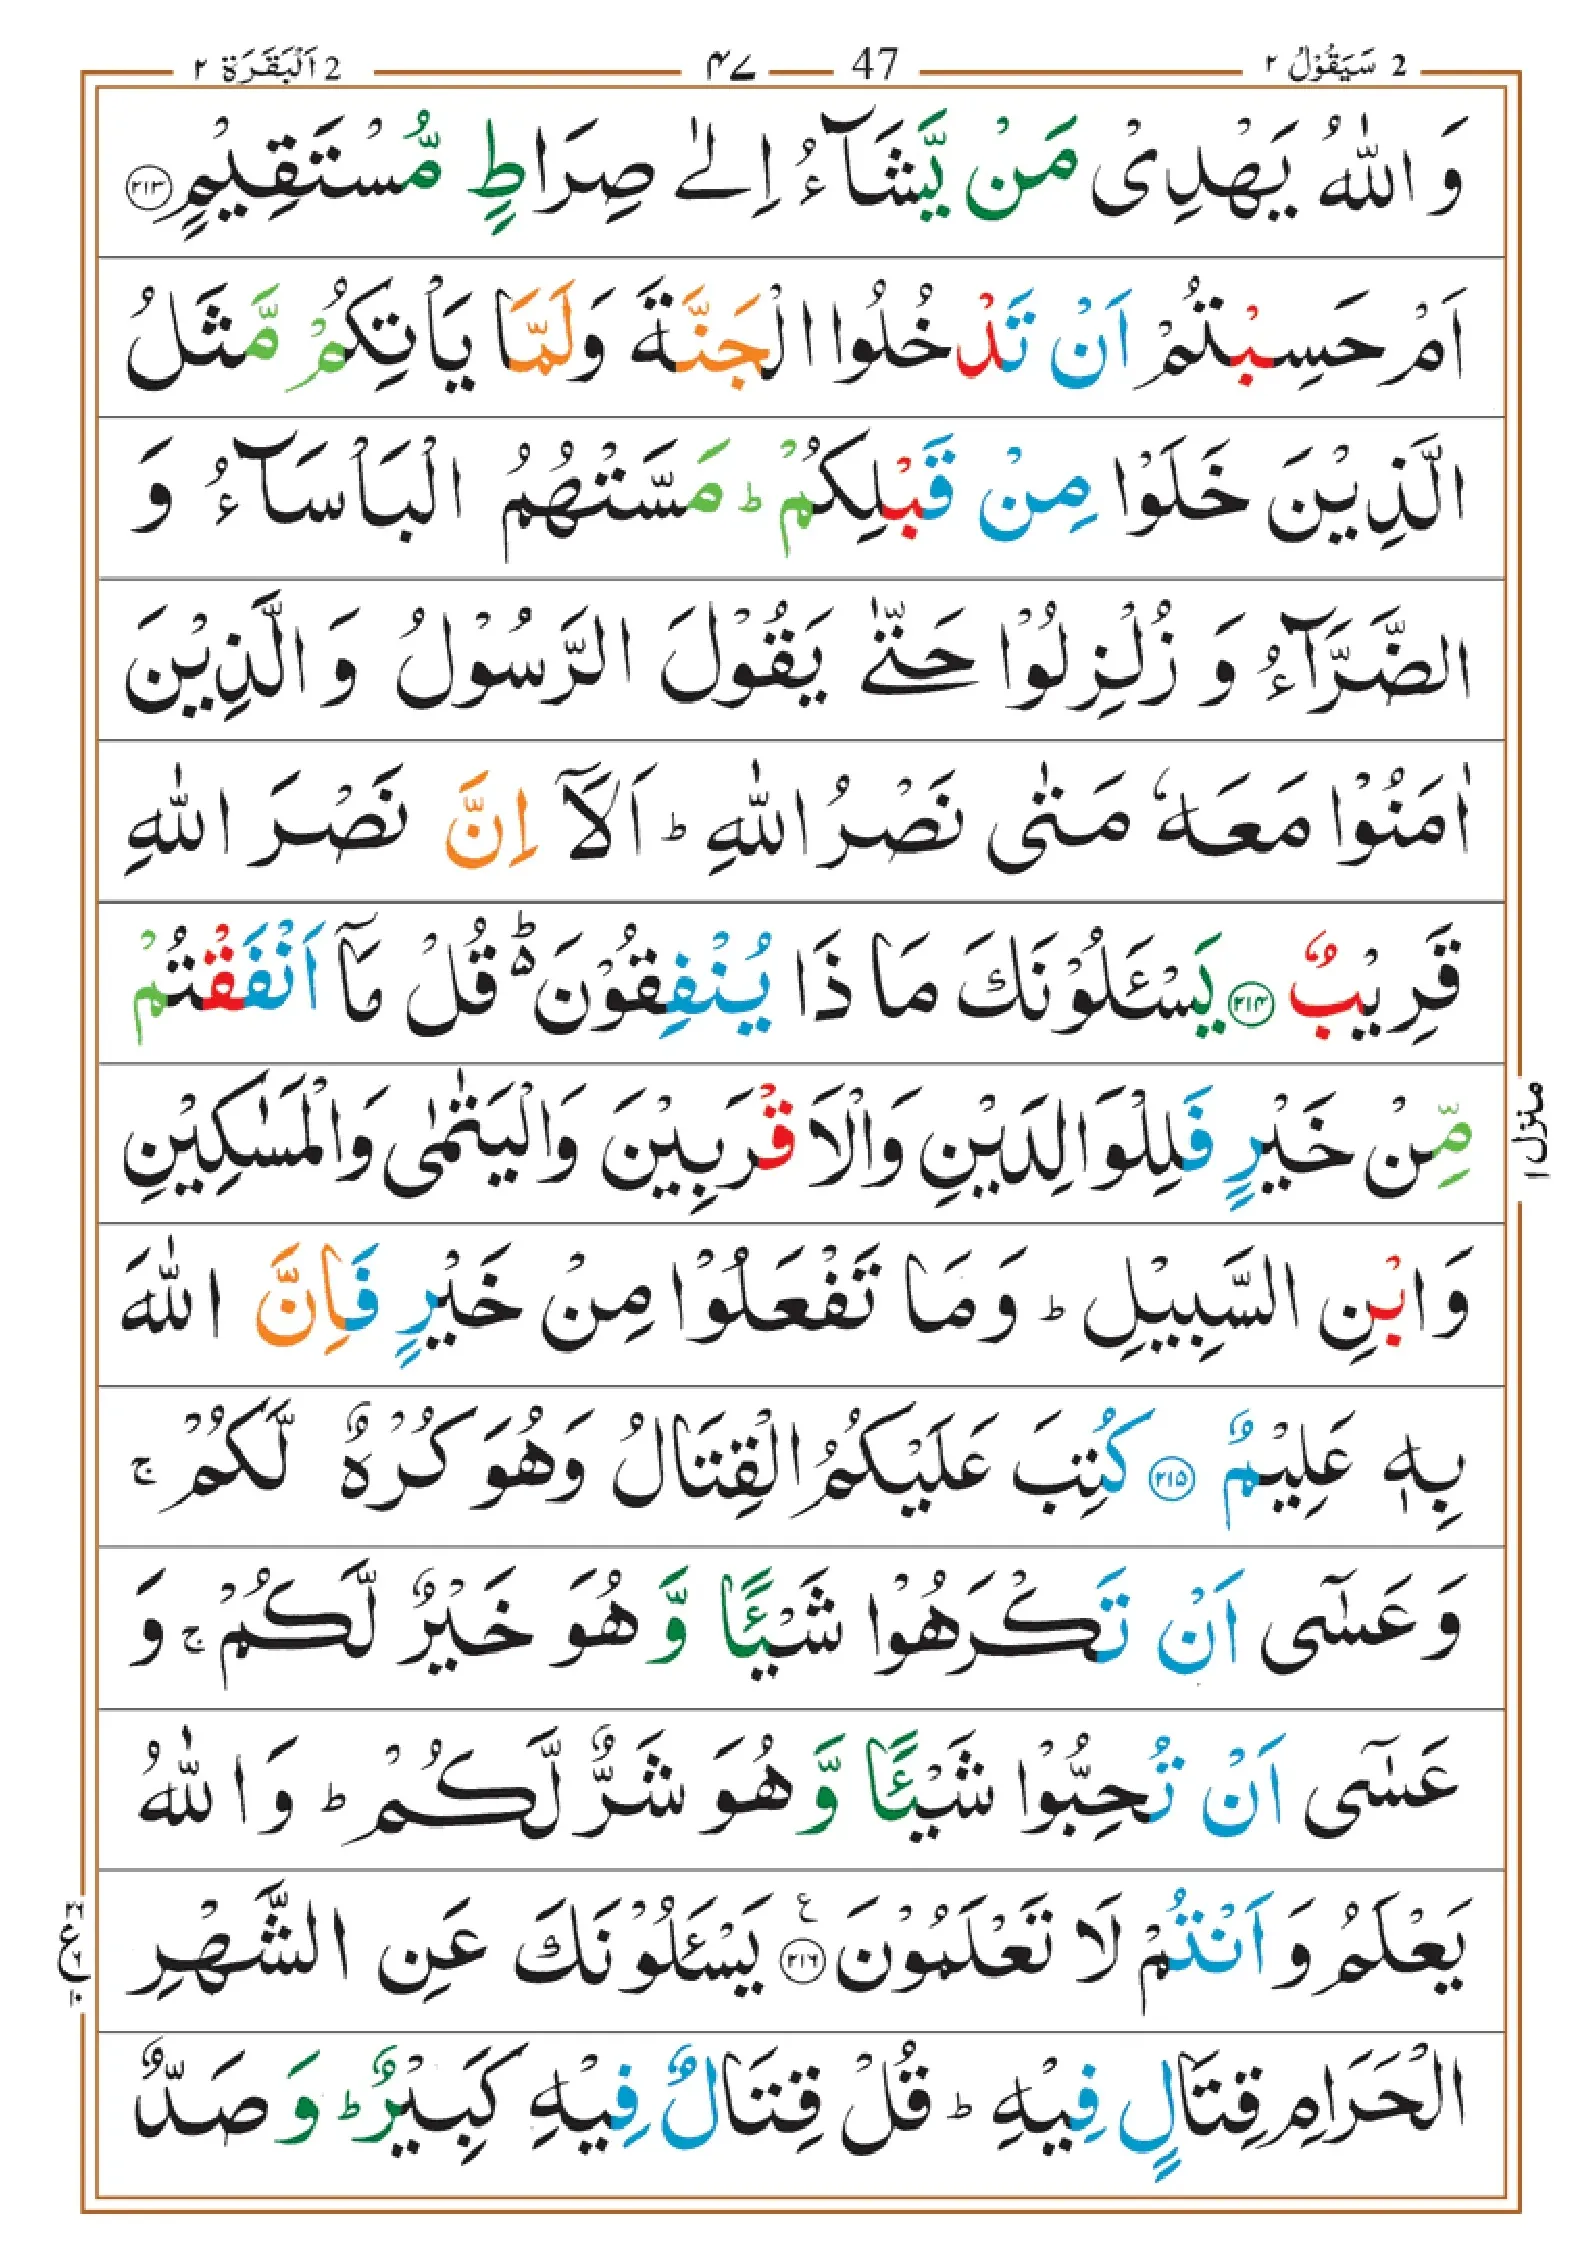 2 سَيَقُوْلُ ٢ 47 ٤٧ 2 اَلْبَقَرَة ٢
وَ اللّٰهُ يَهْدِىْ مَنْ يَّشَآءُ اِلٰى صِرَاطٍ مُّسْتَقِيْمٍ ﴿٢١٣﴾
اَمْ حَسِبْتُمْ اَنْ تَدْخُلُوا الْجَنَّةَ وَلَمَّا يَاْتِكُمْ مَّثَلُ
الَّذِيْنَ خَلَوْا مِنْ قَبْلِكُمْ ؕ مَسَّتْهُمُ الْبَاْسَآءُ وَ
الضَّرَّآءُ وَ زُلْزِلُوْا حَتّٰى يَقُوْلَ الرَّسُوْلُ وَ الَّذِيْنَ
اٰمَنُوْا مَعَهٗ مَتٰى نَصْرُ اللّٰهِ ؕ اَلَاۤ اِنَّ نَصْرَ اللّٰهِ
قَرِيْبٌ ﴿٢١٤﴾ يَسْـَٔلُوْنَكَ مَا ذَا يُنْفِقُوْنَ ؕ۬ قُلْ مَاۤ اَنْفَقْتُمْ
مِّنْ خَيْرٍ فَلِلْوَالِدَيْنِ وَالْاَقْرَبِيْنَ وَالْيَتٰمٰى وَالْمَسٰكِيْنِ
وَابْنِ السَّبِيْلِ ؕ وَمَا تَفْعَلُوْا مِنْ خَيْرٍ فَاِنَّ اللّٰهَ
بِهٖ عَلِيْمٌ ﴿٢١٥﴾ كُتِبَ عَلَيْكُمُ الْقِتَالُ وَهُوَ كُرْهٌ لَّكُمْ ۚ
وَعَسٰۤى اَنْ تَكْرَهُوْا شَيْـًٔا وَّهُوَ خَيْرٌ لَّكُمْ ۚ وَ
عَسٰۤى اَنْ تُحِبُّوْا شَيْـًٔا وَّهُوَ شَرٌّ لَّكُمْ ؕ وَ اللّٰهُ
يَعْلَمُ وَ اَنْتُمْ لَا تَعْلَمُوْنَ ﴿٢١٦﴾ ع يَسْـَٔلُوْنَكَ عَنِ الشَّهْرِ
الْحَرَامِ قِتَالٍ فِيْهِ ؕ قُلْ قِتَالٌ فِيْهِ كَبِيْرٌ ؕ وَ صَدٌّ
منزل ١
٢٦ ع ٦ ١٠